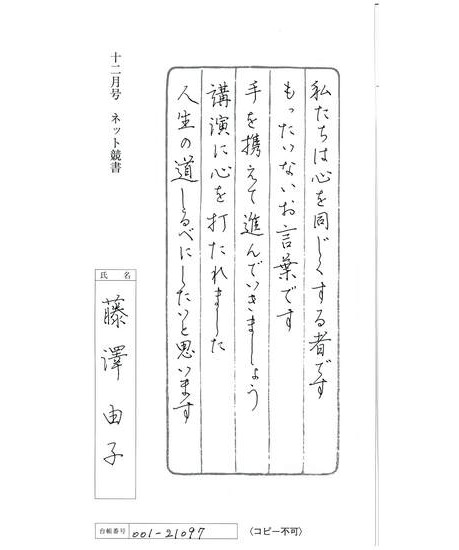 私たちは心を同じくする者です
もったいないお言葉です
手を携えて進んでいきましょう
講演に心を打たれました
人生の道しるべにしたいと思います
十二月号 ネット競書
氏名
藤澤由子
台帳番号 001-21097
(コピー不可)